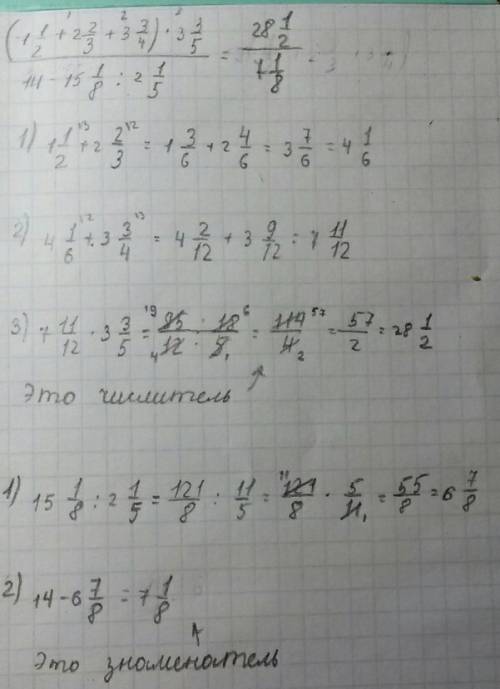 (1 1/2 + 2 2/3 + 3 3/4) · 3 3/5 / 14 - 15 1/8 : 2 1/5 = 28 1/2 / 7 1/8
1) 1 1/2 + 2 2/3 = 1 3/6 + 2 4/6 = 3 7/6 = 4 1/6
2) 4 1/6 + 3 3/4 = 4 2/12 + 3 9/12 = 7 11/12
3) 7 11/12 · 3 3/5 = 95 · 18 / 12 · 5 = 114/4 = 57/2 = 28 1/2
Это числитель
1) 15 1/8 : 2 1/5 = 121/8 : 11/5 = 121/8 · 5/11 = 55/8 = 6 7/8
2) 14 - 6 7/8 = 7 1/8
Это знаменатель